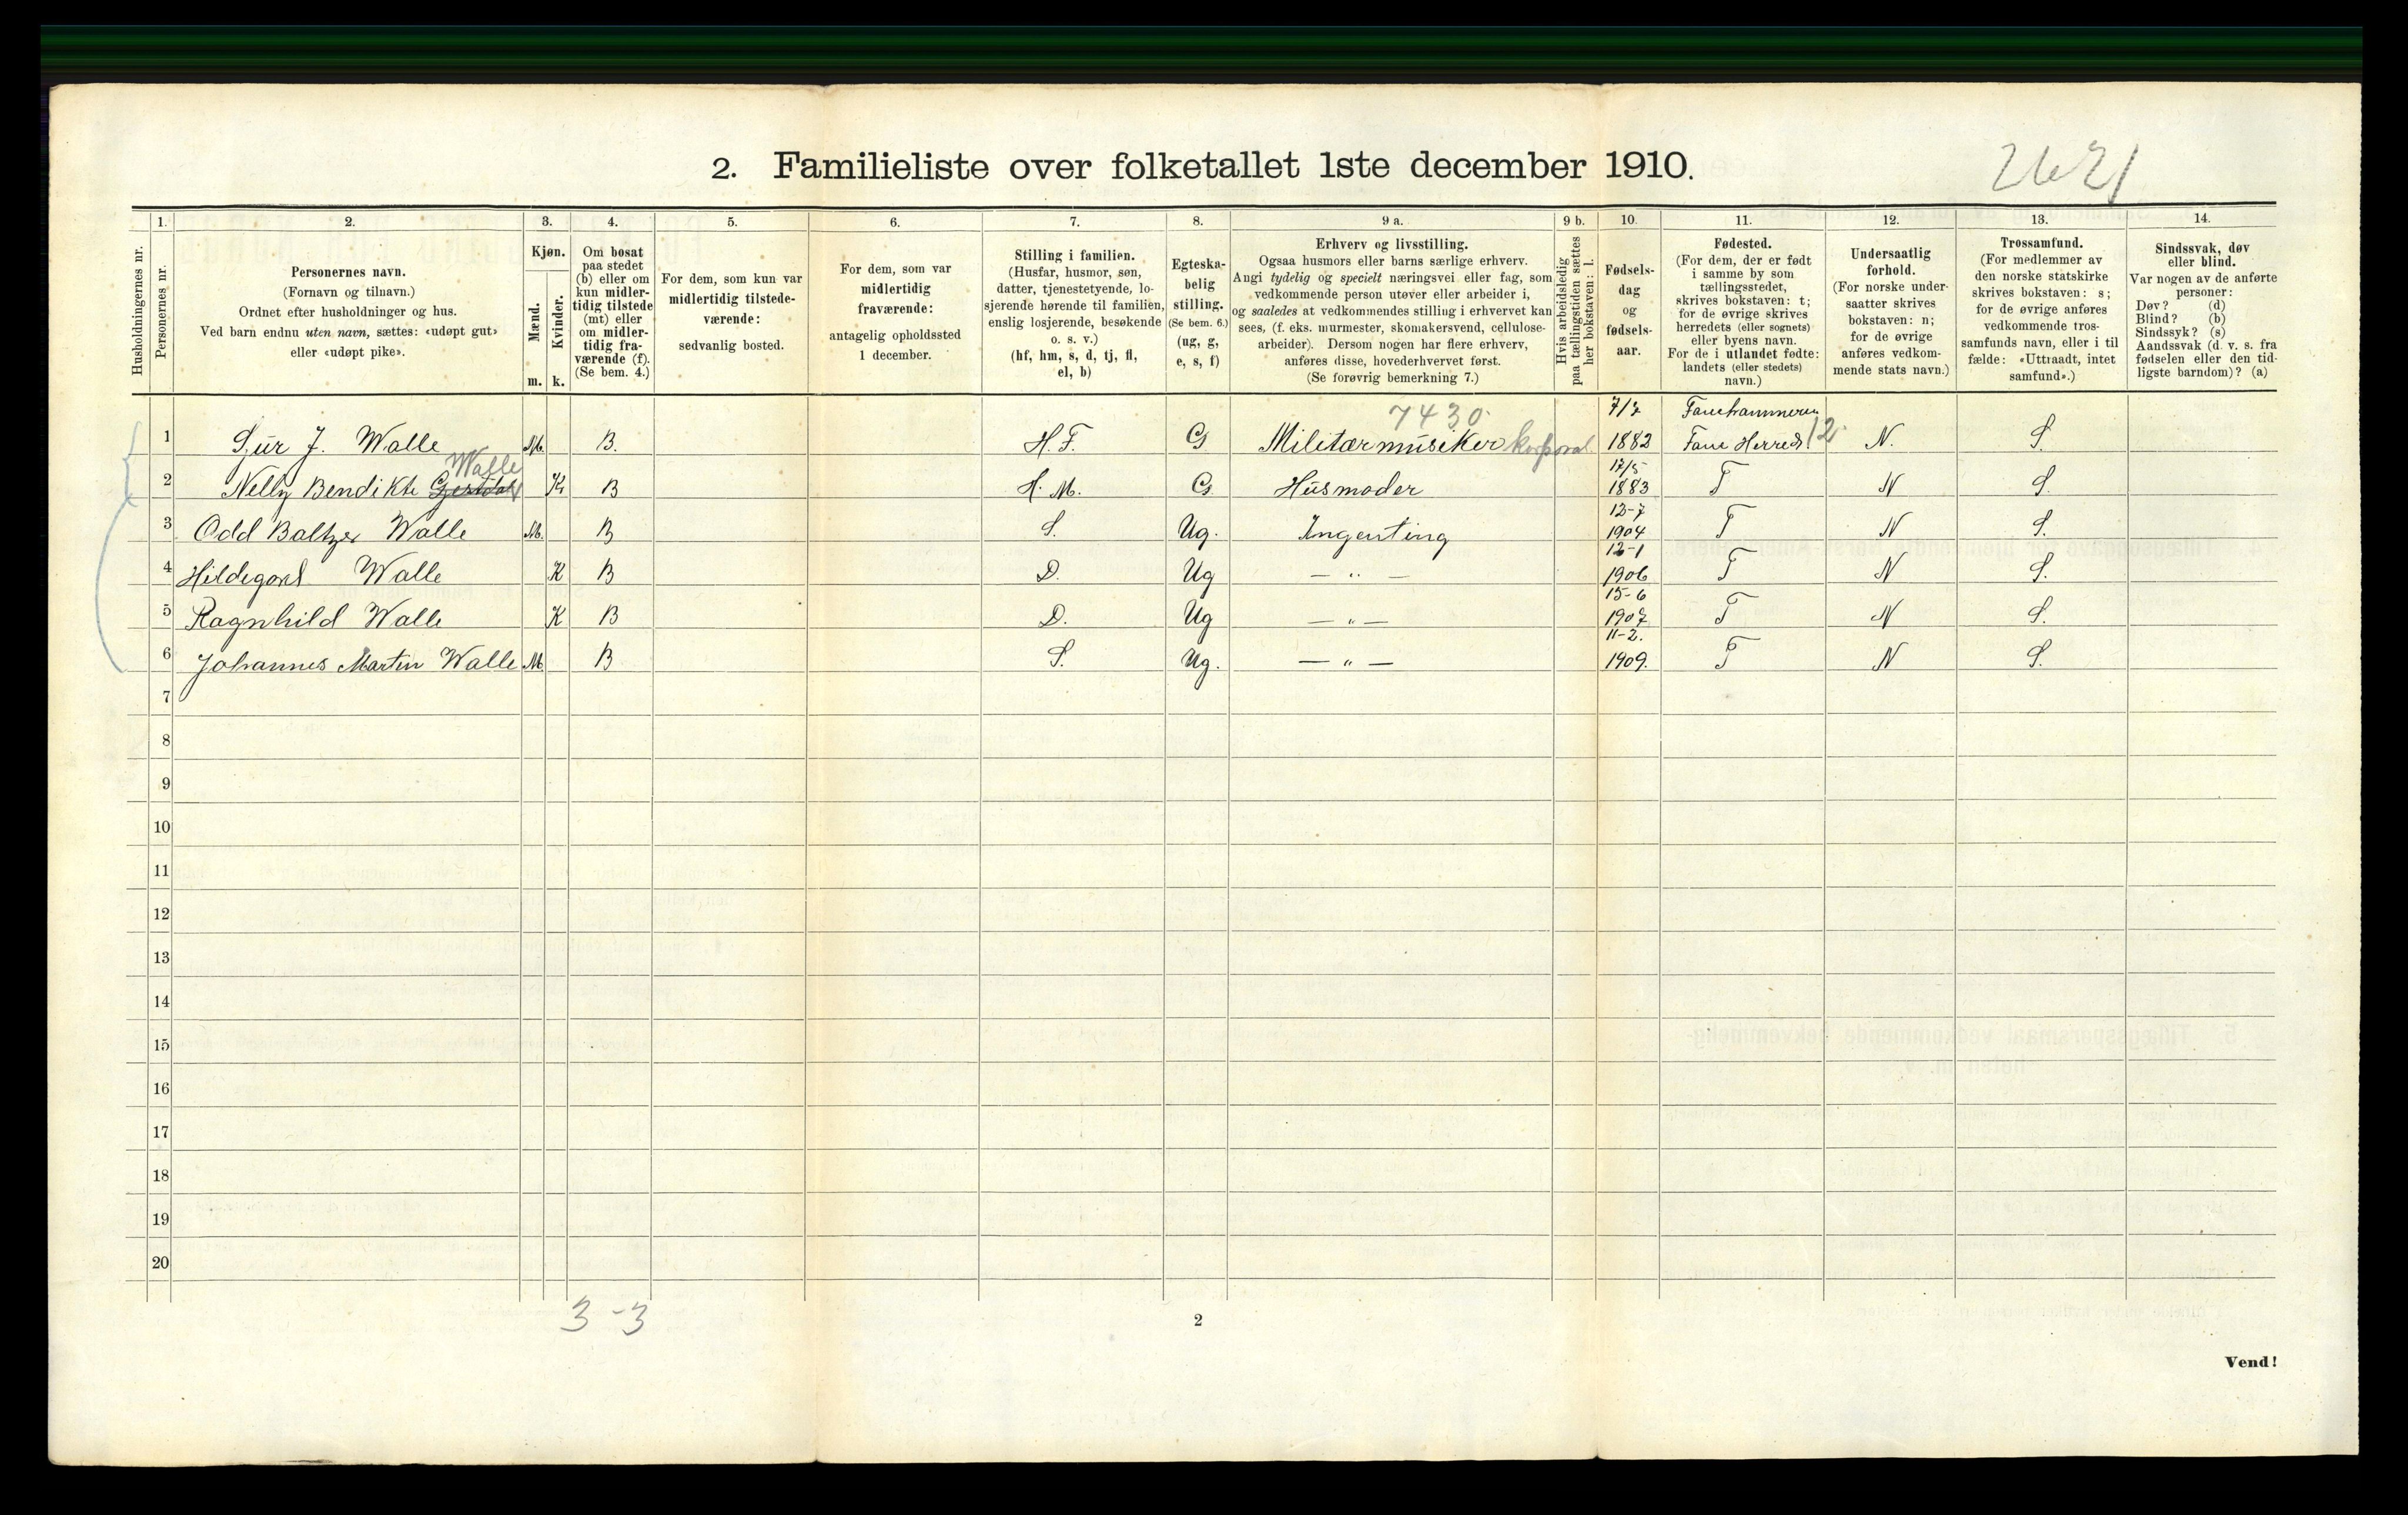 2. Familieliste over folketallet 1ste december 1910.
2621
Husholdningernes nr.
1.
Personernes nr.
2.
Personernes navn.
(Fornavn og tilnavn.)
Ordnet efter husholdninger og hus.
Ved barn endnu uten navn, sættes: «udøpt gut»
eller «udøpt pike».
3.
Kjøn.
Mænd.
m.
Kvinder.
k.
4.
Om bosat
paa stedet
(b) eller om
kun midler-
tidig tilstede
(mt) eller
om midler-
tidig fra-
værende (f).
(Se bem. 4.)
5.
For dem, som kun var
midlertidig tilstede-
værende:
sedvanlig bosted.
6.
For dem, som var
midlertidig
fraværende:
antagelig opholdssted
1 december.
7.
Stilling i familien.
(Husfar, husmor, søn,
datter, tjenestetyende, lo-
sjerende hørende til familien,
enslig losjerende, besøkende
o. s. v.)
(hf, hm, s, d, tj, fl,
el, b)
8.
Egteska-
belig
stilling.
(Se bem. 6.)
(ug, g,
e, s, f)
9 a.
Erhverv og livsstilling.
Ogsaa husmors eller barns særlige erhverv.
Angi tydelig og specielt næringsvei eller fag, som
vedkommende person utøver eller arbeider i,
og saaledes at vedkommendes stilling i erhvervet kan
sees, (f. eks. murmester, skomakersvend, cellulose-
arbeider). Dersom nogen har flere erhverv,
anføres disse, hovederhvervet først.
(Se forøvrig bemerkning 7.)
9 b.
Hvis arbeidsledig
paa tællingstiden sættes
her bokstaven: l.
10.
Fødsels-
dag
og
fødsels-
aar.
11.
Fødested.
(For dem, der er født
i samme by som
tællingsstedet,
skrives bokstaven: t;
for de øvrige skrives
herredets (eller sognets)
eller byens navn.
For de i utlandet fødte:
landets (eller stedets)
navn.)
12.
Undersaatlig
forhold.
(For norske under-
saatter skrives
bokstaven: n;
for de øvrige
anføres vedkom-
mende stats navn.)
13.
Trossamfund.
(For medlemmer av
den norske statskirke
skrives bokstaven: s;
for de øvrige anføres
vedkommende tros-
samfunds navn, eller i til
fælde: «Uttraadt, intet
samfund».)
14.
Sindssvak, døv
eller blind.
Var nogen av de anførte
personer:
Døv? (d)
Blind? (b)
Sindssyk? (s)
Aandssvak (d. v. s. fra
fødselen eller den tid-
ligste barndom)? (a)
7430 Fanehammeren
1 Sjur J. Walle M. B. H. F. G Militærmusiker korporal. 1882 Fane Herred 12. N. S.
Walle 17/5
2 Nelly Bendikte K B H. M. G Husmoder 1883 T N S.
12-7
3 Odd Baltzer Walle M. B S. Ug. Ingenting 1904 T N S.
12-1
4 Hildegard Walle K B D. Ug — " — 1906 T N S.
15-6
5 Ragnhild Walle K B D. Ug — " — 1907 T N S.
11-2.
6 Johannes Martin Walle M. B S. Ug. — " — 1909. T N S.
7
8
9
10
11
12
13
14
15
16
17
18
19
20
3 - 3
2
Vend!